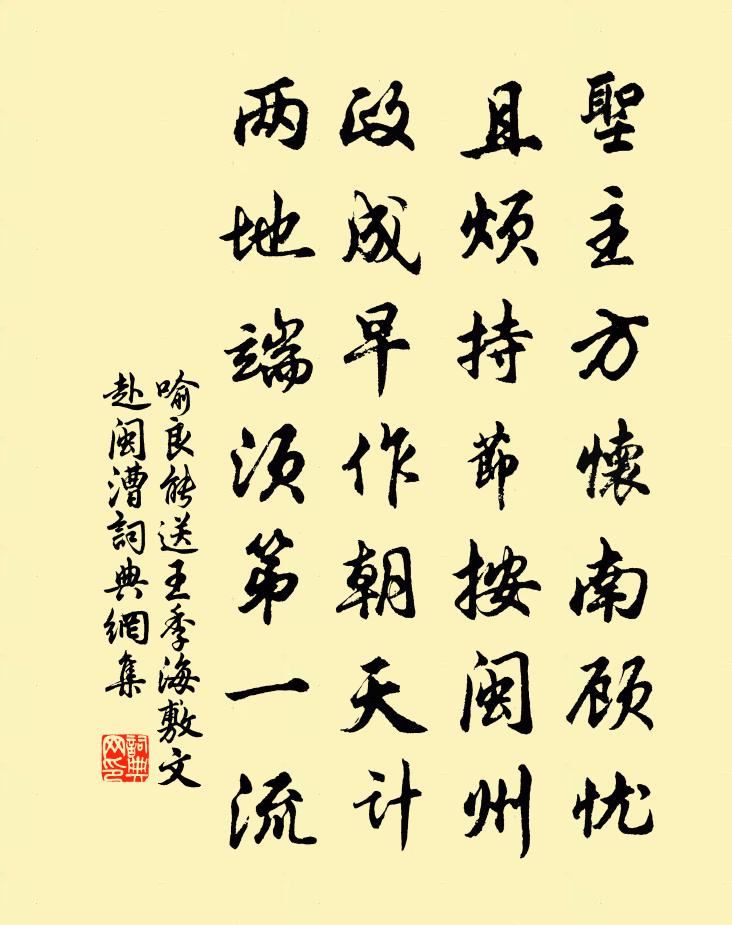 聖主方懷南顾忧
且烦持節按闽州
政成早作朝天计
两地端须第一流
喻良能送王季海敷文
赴闽漕詞典網集
詞典
网印